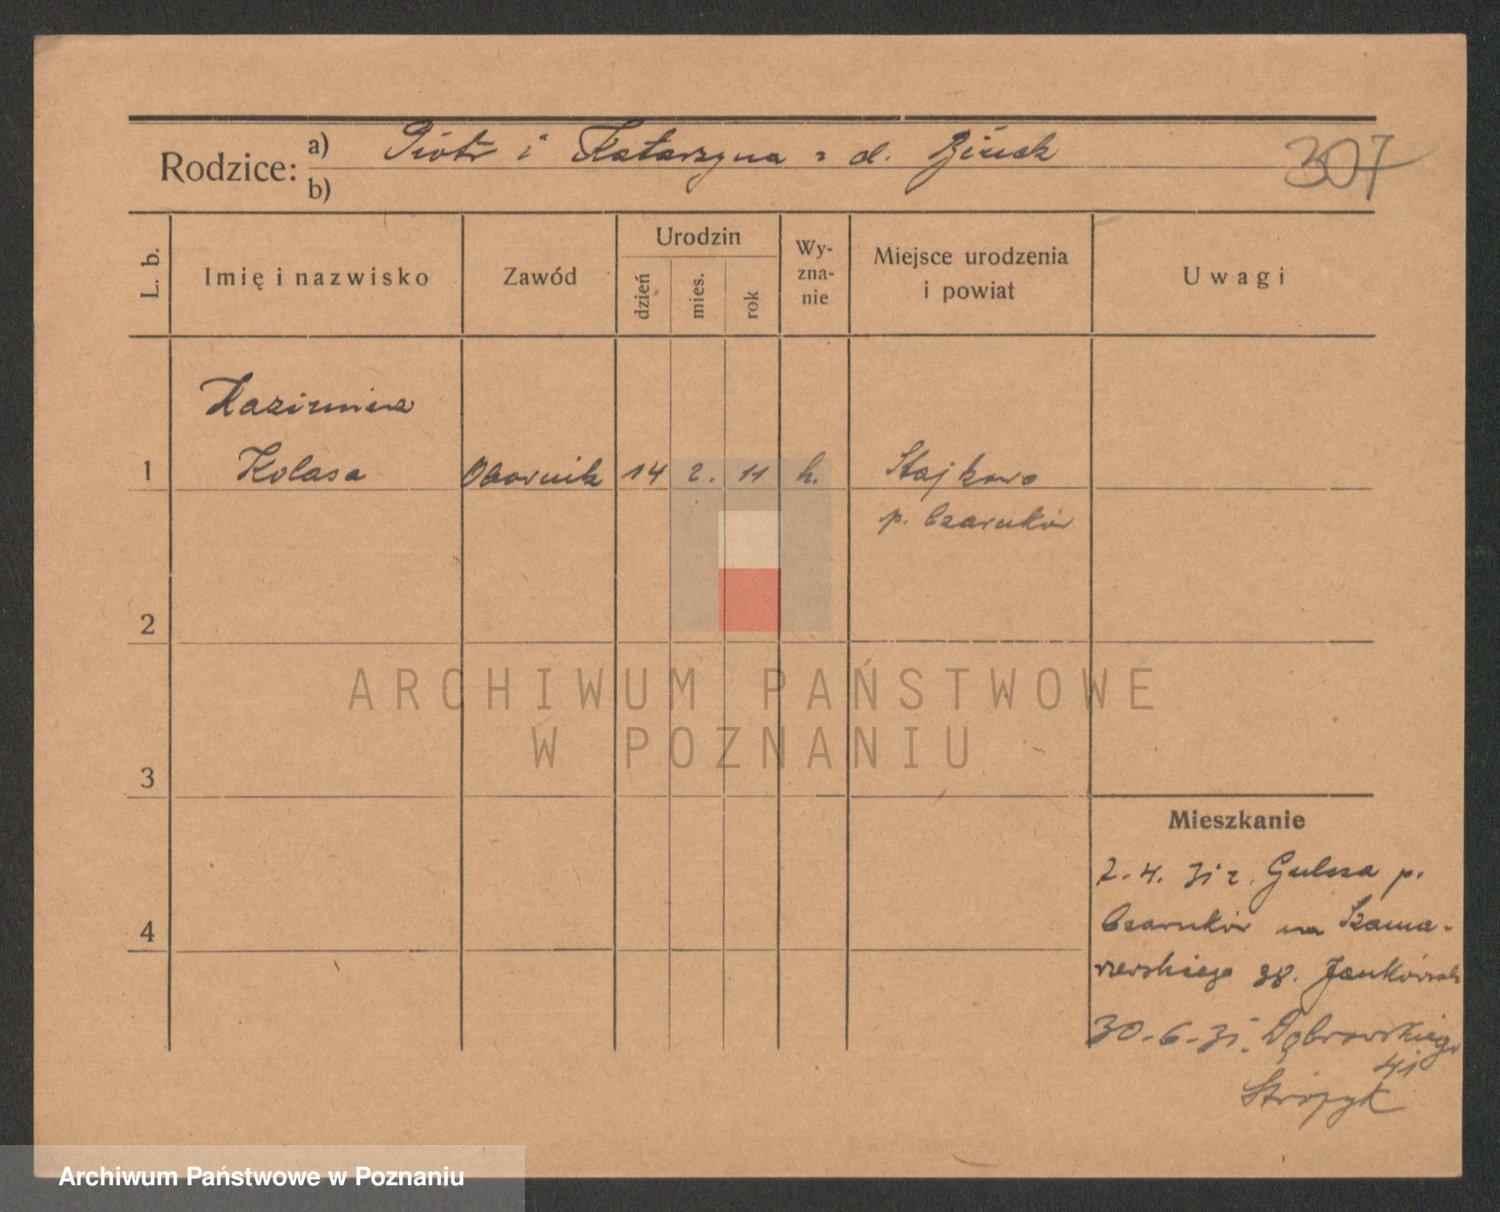 307
Rodzice: a) Piotr i Katarzyna z d.
b)
L. b.
Imię i nazwisko
Zawód
Urodzin
dzień
mies.
rok
Wy-
zna-
nie
Miejsce urodzenia
i powiat
Uwagi
Kazimierz
1 Kolasa Obornik 14 2. 11 k. Stajkowo
p. Czarnków
2
3
4
ARCHIWUM PAŃSTWOWE
W POZNANIU
Mieszkanie
2.4.31 z Gulcza p.
Czarnków na Szama-
rzewskiego 38.
30-6-31. Dąbrowskiego
41
Archiwum Państwowe w Poznaniu